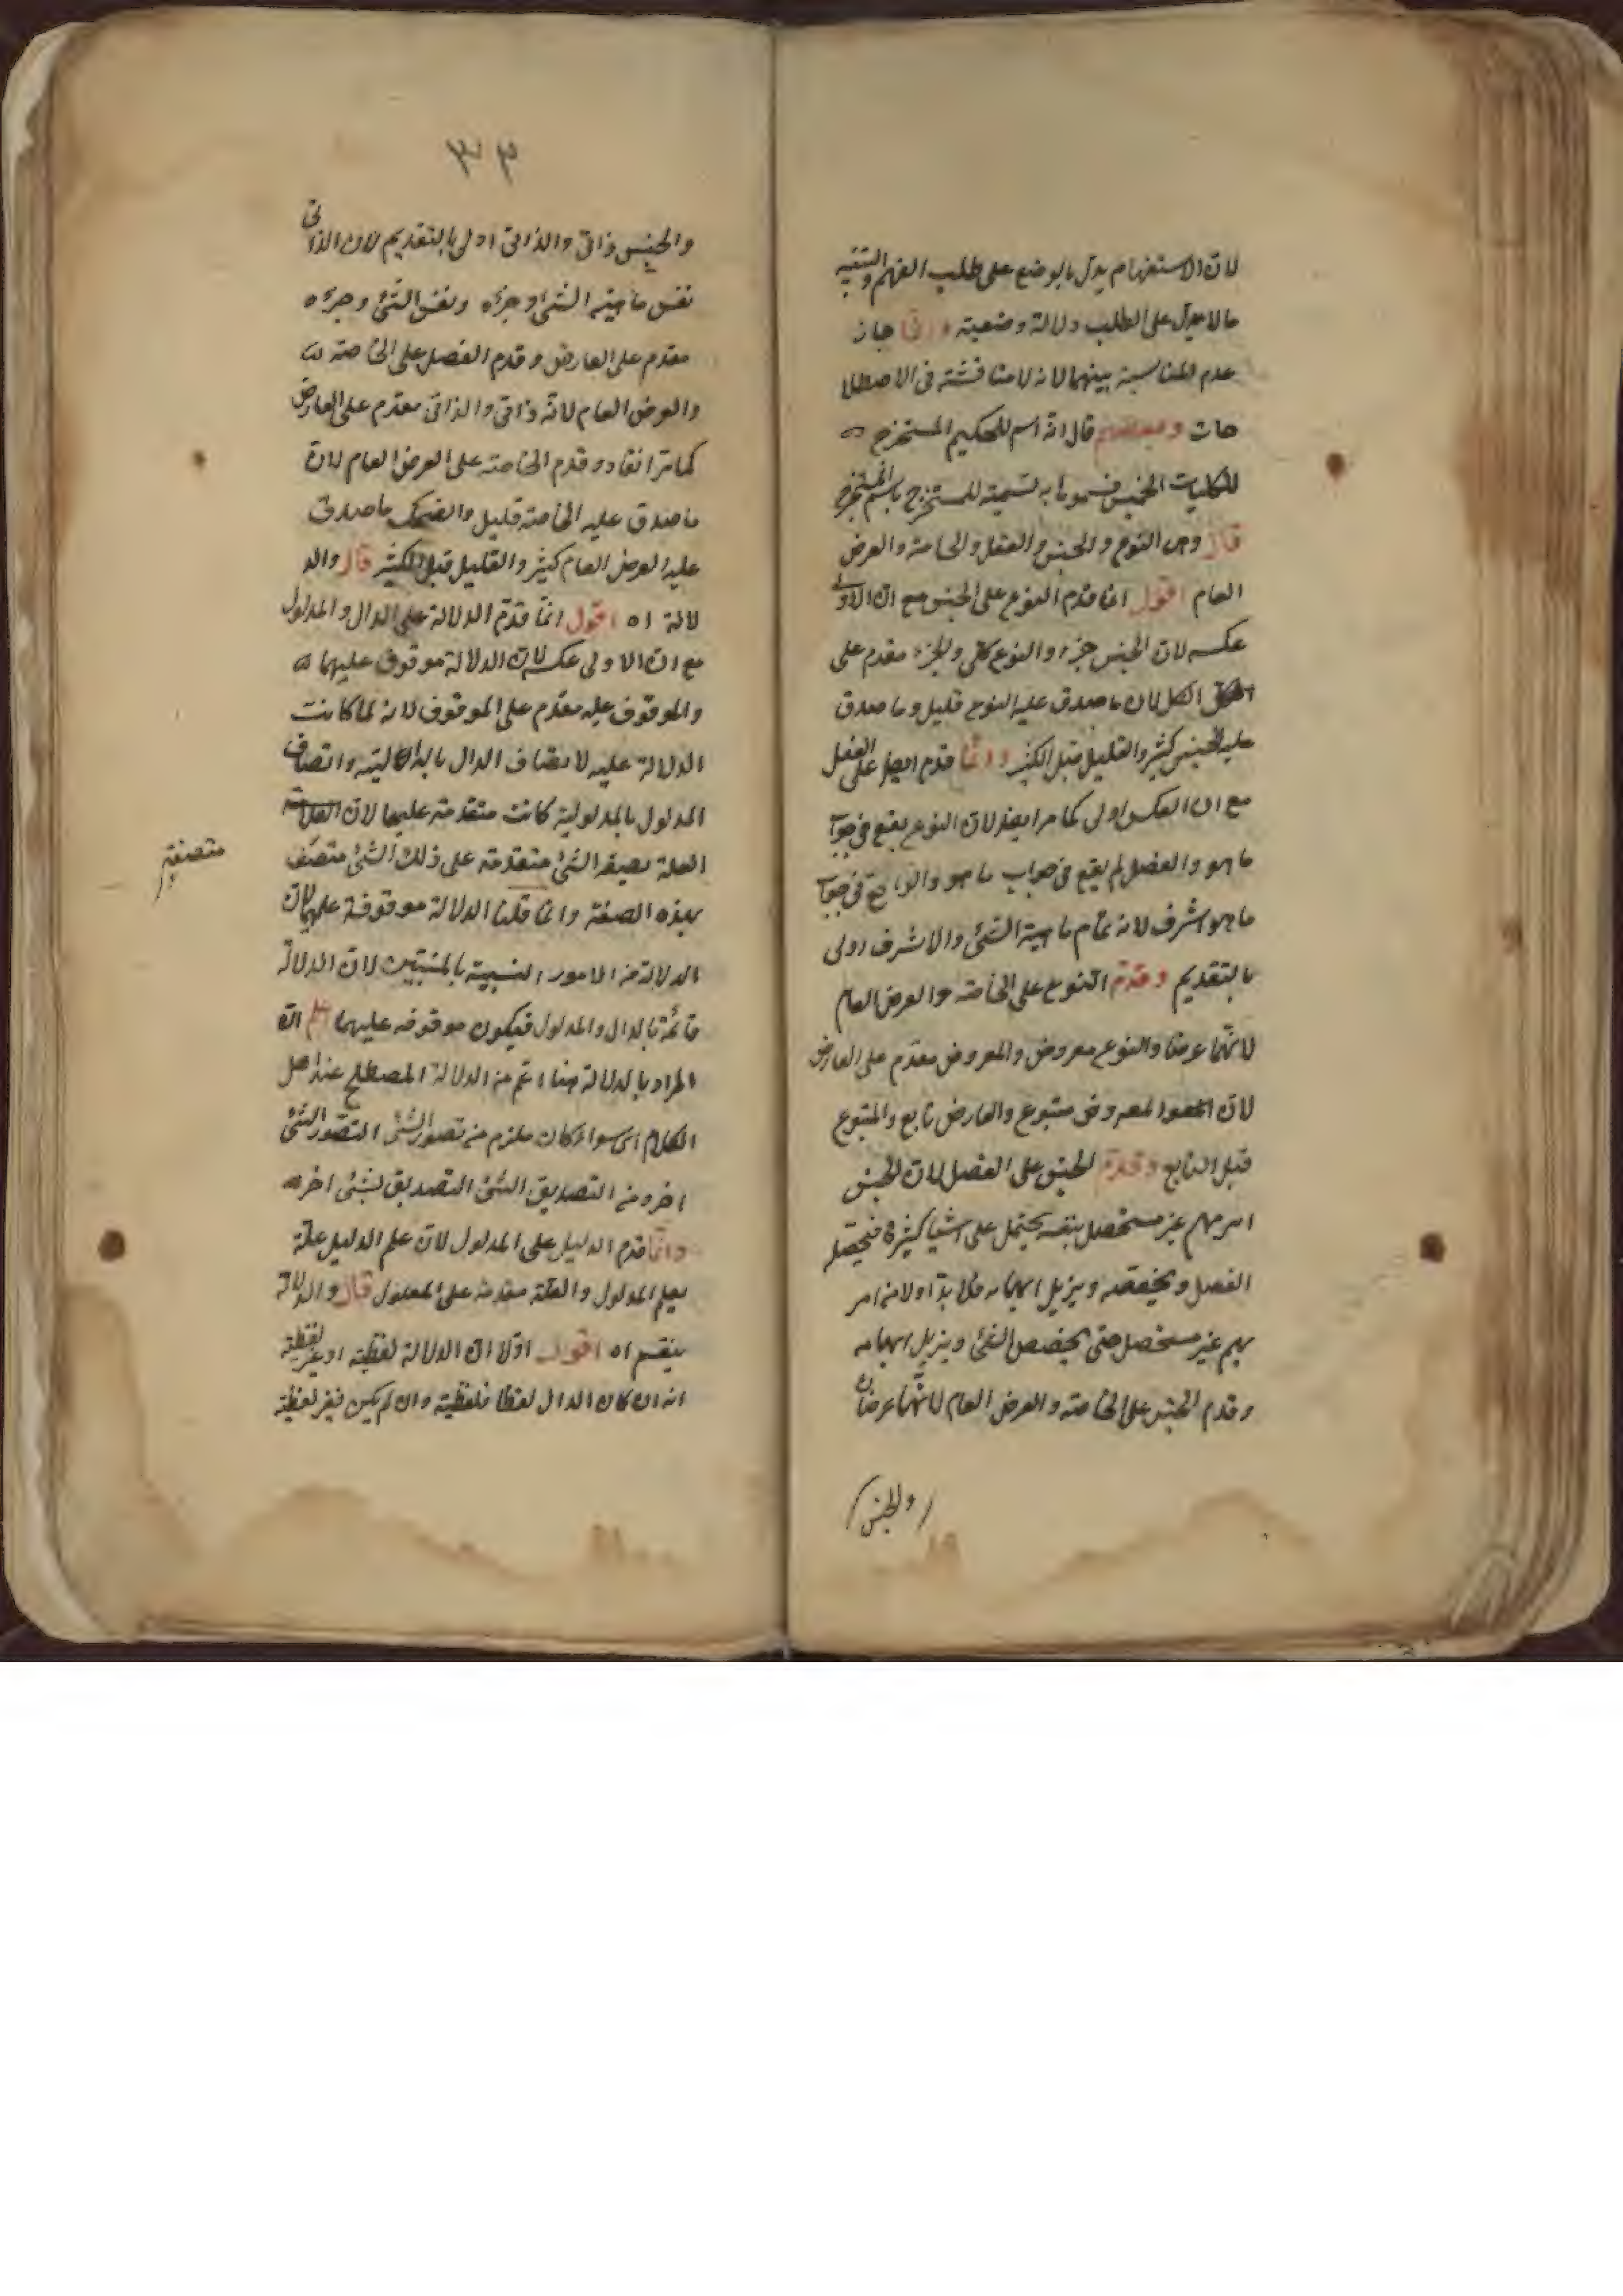 لان الاستفهام يدل بالوضع على طلب الفهم والتنبيه
ما لا يدل على الطلب دلالة وضعية وانما جاز
عدم المناسبة بينهما لانه لا مناقشة فى الاصطلا
حات وبعضهم قال انه اسم للحكيم المستخرج
للكليات الخمس فسموها به تسمية للمستخرج باسم المستخرج
قال وهى النوع والجنس والفصل والخاصة والعرض
العام اقول انما قدم النوع على الجنس مع ان الاولى
عكسه لان الجنس جزء والنوع كل والجزء مقدم على
الكل لان ما صدق عليه النوع قليل وما صدق
عليه الجنس كثير والقليل قبل الكثير وانما قدم ايضا على الفصل
مع ان العكس اولى كما مر ايضا لان النوع يقع فى جواب
ما هو والفصل لم يقع فى جواب ما هو والواقع فى جواب
ما هو اشرف لانه تمام ماهية الشئ والاشرف اولى
بالتقديم وقدم النوع على الخاصة والعرض العام
لانهما عرضا والنوع معروض والمعروض مقدم على العارض
لان المعروض متبوع والعارض تابع والمتبوع
قبل التابع وقدم الجنس على الفصل لان الجنس
امر مبهم غير متحصل بنفسه يحتمل على اشيا كثيرة فيحصله
الفصل ويخصصه ويزيل ابهامه فلا بد اولا من امر
مبهم غير متحصل حتى يخصص الشئ ويزيل ابهامه
وقدم الجنس على الخاصة والعرض العام لانهما عرضان
والجنس
٣٣
والجنس ذاتى والذاتى اولى بالتقديم لان الذاتى
نفس ماهية الشئ او جزءه ونفس الشئ وجزءه
مقدم على العارض وقدم الفصل على الخاصة
والعرض العام لانه ذاتى والذاتى مقدم على العارض
كما مر انفا وقدم الخاصة على العرض العام لان
ما صدق عليه الخاصة قليل وما صدق
عليه العرض العام كثير والقليل قبل الكثير قال والد
لالة اه اقول انما قدم الدلالة على الدال والمدلول
مع ان الاولى عكسه لان الدلالة موقوف عليهما
والموقوف عليه مقدم على الموقوف لانه لما كانت
الدلالة علية لاتصاف الدال بالدالية واتصاف
المدلول بالمدلولية كانت متقدمة عليهما لان
العلة بصيغة الشئ متقدمة على ذلك الشئ متصف
متصفة
بهذه الصفة وانما قلنا الدلالة موقوفة عليهما لان
الدلالة من الامور النسبية بالمنتسبين لان الدلالة
قائمة بالدال والمدلول فيكون موقوفه عليهما ثم ان
المراد بالدلالة هنا اعم من الدلالة المصطلح عند اهل
الكلام اى سواء كان ملزم من تصور الشئ التصور الشئ
اخر ومن التصديق الشئ التصديق لشئ اخر
وانما قدم الدليل على المدلول لان علم الدليل علة
بعلم المدلول والعلة مقدمة على المعلول قال والدلالة
ينقسم اه اقول اولا ان الدلالة لفظية او غير لفظية
انه ان كان الدال لفظا فلفظية وان لم يكن فغير لفظية